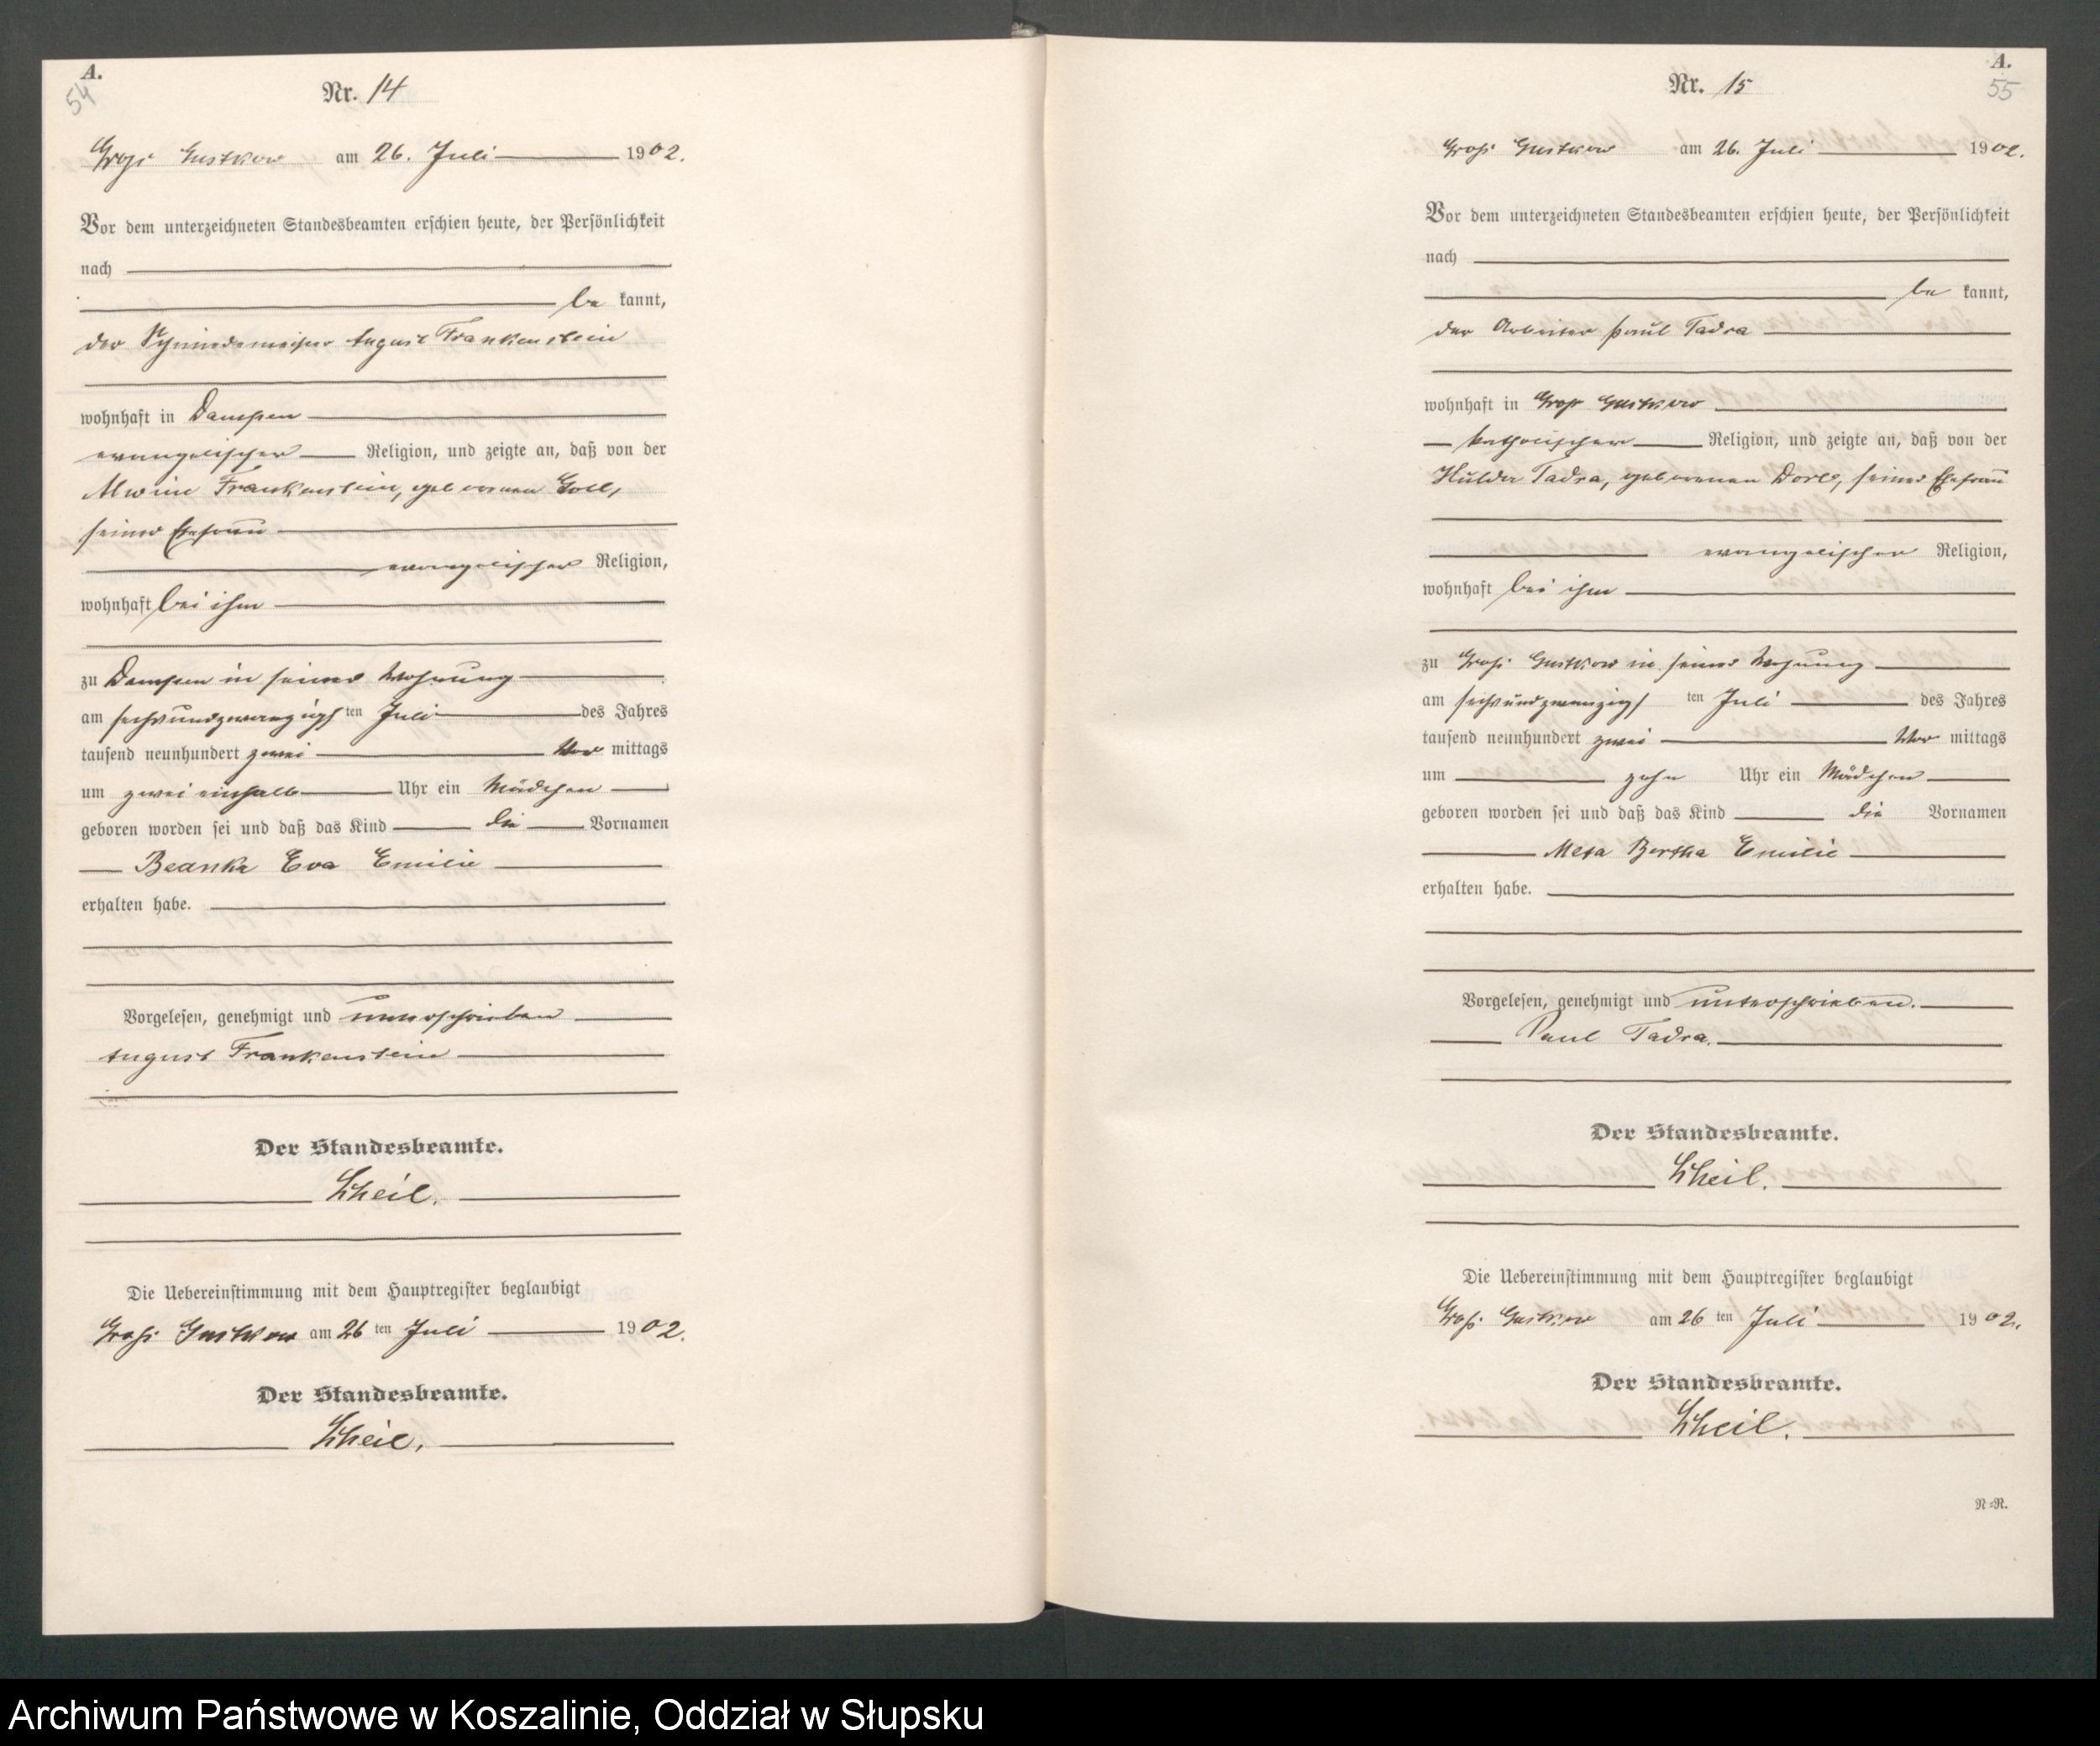 A.
54
Nr. 14
Groß Gustkow am 26. Juli 1902.
Vor dem unterzeichneten Standesbeamten erschien heute, der Persönlichkeit
nach
be kannt,
der Schmiedemeister August Frankenstein
wohnhaft in Dampen
evangelischer Religion, und zeigte an, daß von der
Alwine Frankenstein, geborenen Goll,
seiner Ehefrau
evangelischer Religion,
wohnhaft bei ihm
zu Dampen in seiner Wohnung
am sechsundzwanzigsten Juli des Jahres
tausend neunhundert zwei Vor mittags
um zwei einhalb Uhr ein Mädchen
geboren worden sei und daß das Kind die Vornamen
Beanka Eva Emilie
erhalten habe.
Vorgelesen, genehmigt und unterschrieben
August Frankenstein
Der Standesbeamte.
Theil.
Die Uebereinstimmung mit dem Hauptregister beglaubigt
Groß Gustkow am 26 ten Juli 1902.
Der Standesbeamte.
Theil.
A.
55
Nr. 15
Groß Gustkow am 26. Juli 1902.
Vor dem unterzeichneten Standesbeamten erschien heute, der Persönlichkeit
nach
be kannt,
der Arbeiter Paul Tadra
wohnhaft in Groß Gustkow
katholischer Religion, und zeigte an, daß von der
Hulda Tadra, geborenen seiner Ehefrau
evangelischer Religion,
wohnhaft bei ihm
zu Groß Gustkow in seiner Wohnung
am sechsundzwanzigsten Juli des Jahres
tausend neunhundert zwei Vor mittags
um zehn Uhr ein Mädchen
geboren worden sei und daß das Kind die Vornamen
Meta Bertha Emilie
erhalten habe.
Vorgelesen, genehmigt und unterschrieben.
Paul Tadra.
Der Standesbeamte.
Theil.
Die Uebereinstimmung mit dem Hauptregister beglaubigt
Groß Gustkow am 26 ten Juli 1902.
Der Standesbeamte.
Theil.
N=R.
Archiwum Państwowe w Koszalinie, Oddział w Słupsku